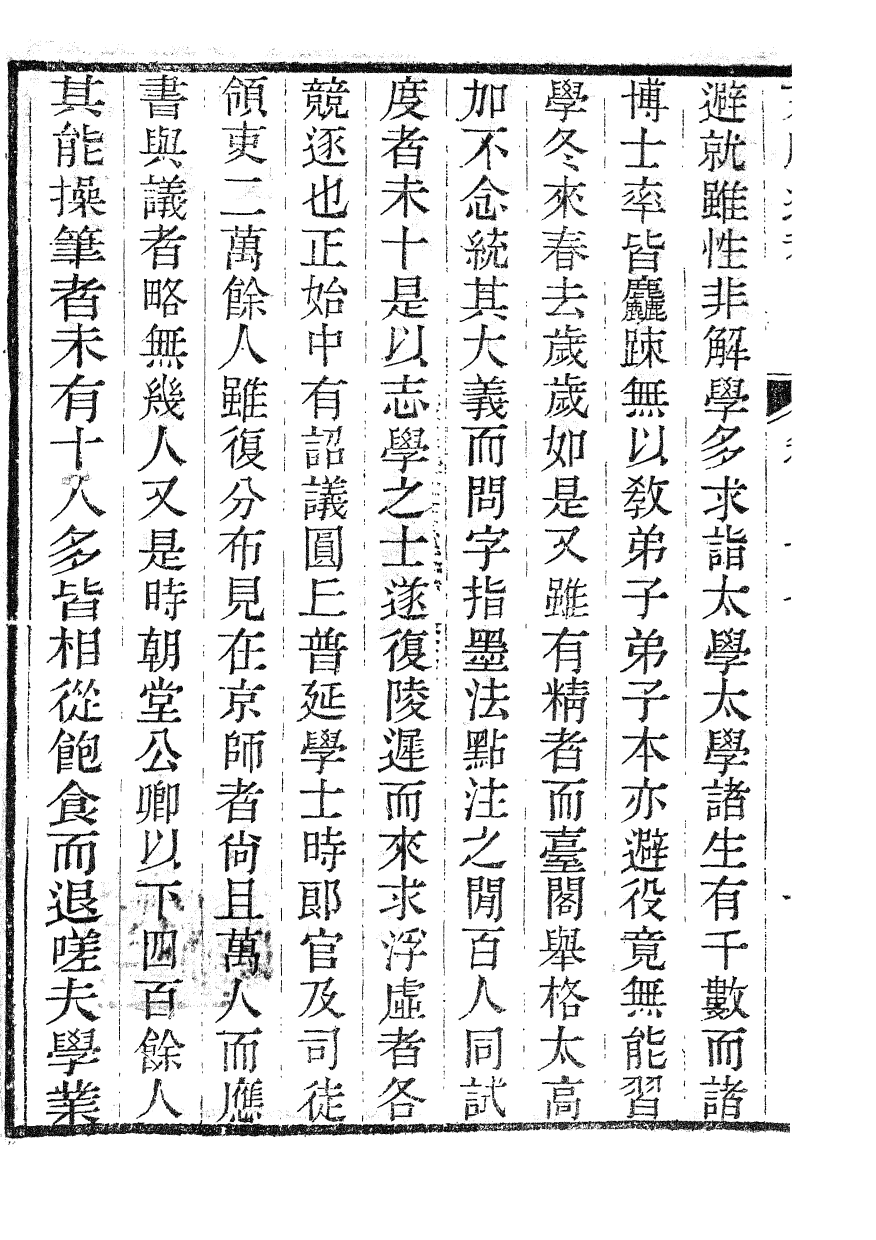 避就雖性非解學多求詣太學太學諸生有千數而諸
博士率皆麤踈無以敎弟子弟子本亦避役竟無能習
學冬來春去歲歲如是又雖有精者而臺閣舉格太高
加不念統其大義而問字指墨法點注之閒百人同試
度者未十是以志學之士遂復陵遲而來求浮虛者各
競逐也正始中有詔議圓丘普延學士時郎官及司徒
領吏二萬餘人雖復分布見在京師者尙且萬人而應
書與議者略無幾人又是時朝堂公卿以下四百餘人
其能操筆者未有十人多皆相從飽食而退嗟夫學業